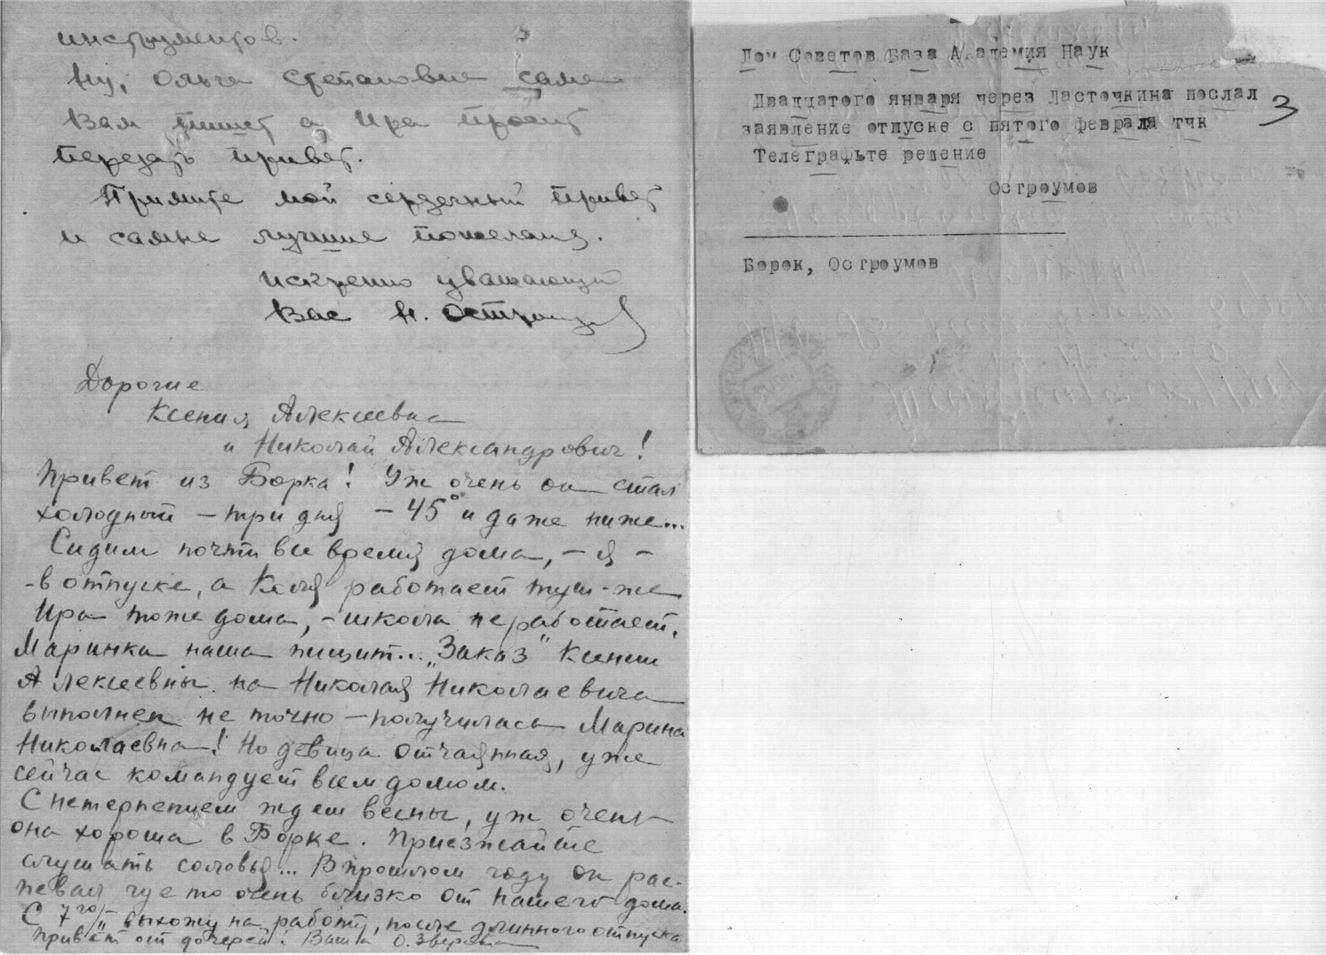 инструментов.
Ну, Ольга Степановна сама
Вам пишет а Ира просит
передать привет.
Примите мой сердечный привет
и самые лучшие пожелания.
искренно уважающий
Вас Н. Остроумов
Дорогие
Ксения Алексеевна
и Николай Александрович!
Привет из Борка! Уж очень он стал
холодный – три дня – 45° и даже ниже...
Сидим почти все время дома, – я –
– в отпуске, а Коля работает тут-же
Ира тоже дома, – школа не работает.
Маринка наша пищит... „Заказ" Ксении
Алексеевны на Николая Николаевича
выполнен не точно – получилась Марина
Николаевна! Но девица отчаянная, уже
сейчас командует всем домом.
С нетерпением ждем весны, уж очень
она хороша в Борке. Приезжайте
слушать соловья... В прошлом году он рас-
певал где то очень близко от нашего дома.
С 7го/II выхожу на работу, после длинного отпуска
Привет от дочерей! Ваша О. Зверева
Дом Советов База Академия Наук
Двадцатого января через Ласточкина послал
3
заявление отпуске с пятого февраля тчк
Телеграфьте решение
Остроумов
Борок, Остроумов